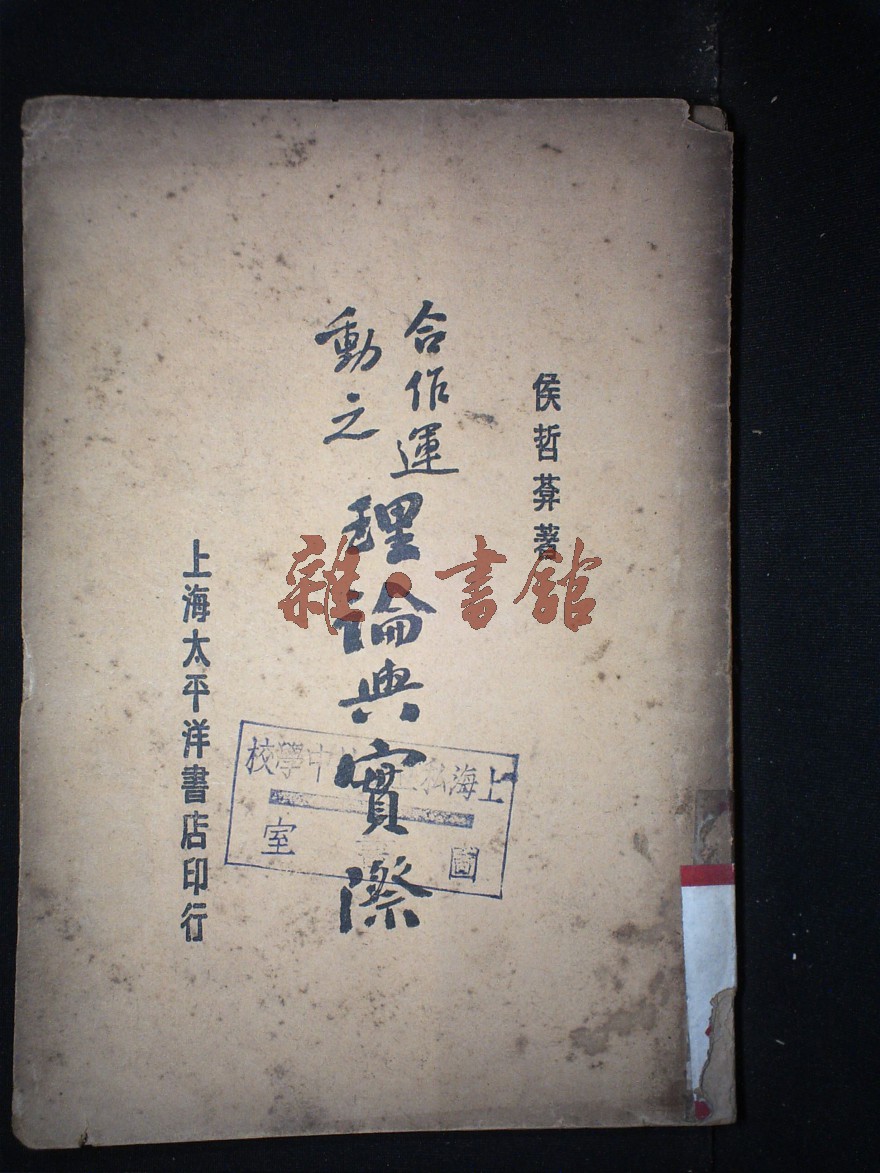 侯哲葊著
合作運
動之
理論與實際
上海太平洋書店印行
雜·書館
上海私立 中學校
圖 室